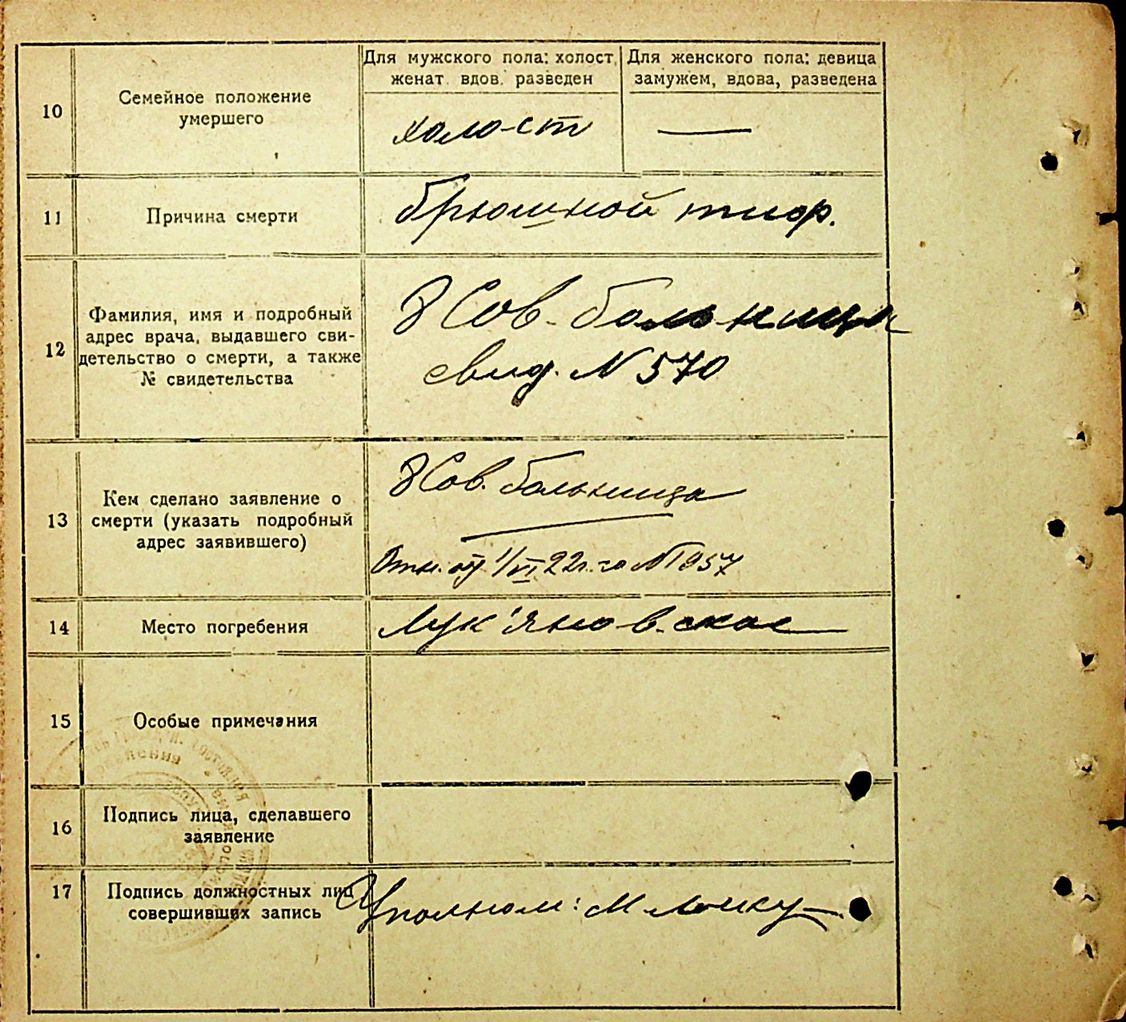 Для мужского пола: холост, женат. вдов. разведен
Для женского пола: девица замужем, вдова, разведена
10
Семейное положение
умершего
холост
—
11
Причина смерти
брюшной тиф.
12
Фамилия, имя и подробный
адрес врача, выдавшего сви-
детельство о смерти, а также
№ свидетельства
3 Сов. больница
свид. N 570
13
Кем сделано заявление о
смерти (указать подробный
адрес заявившего)
3 Сов. больница
Отн. от 1/VI 22 г. за N 1957
14
Место погребения
Лук'яновское
15
Особые примечания
16
Подпись лица, сделавшего
заявление
17
Подпись должностных лиц
совершивших запись
Уполном: